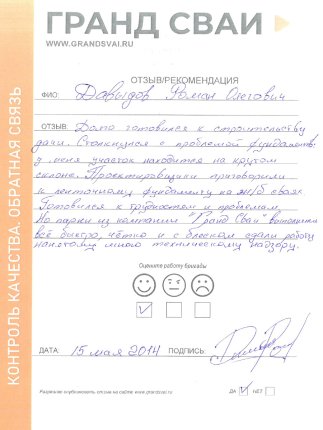 ГРАНД СВАИ
WWW.GRANDSVAI.RU
КОНТРОЛЬ КАЧЕСТВА. ОБРАТНАЯ СВЯЗЬ
ОТЗЫВ/РЕКОМЕНДАЦИЯ
ФИО: Давыдов Роман Олегович
ОТЗЫВ: Долго готовился к строительству
дачи. Столкнулся с проблемой фундамента:
у меня участок находится на крутом
склоне. Проектировщики приговорили
к ленточному фундаменту на ж/б сваях
Готовился к трудностям и проблемам.
Но парни из компании "Гранд Сваи" выполнили
всё быстро, чётко и с блеском сдали работу
нанятому мною техническому надзору.
Оцените работу бригады
ДАТА: 15 мая 2014 ПОДПИСЬ:
Разрешаю опубликовать отзыв на сайте www.grandsvai.ru ДА НЕТ